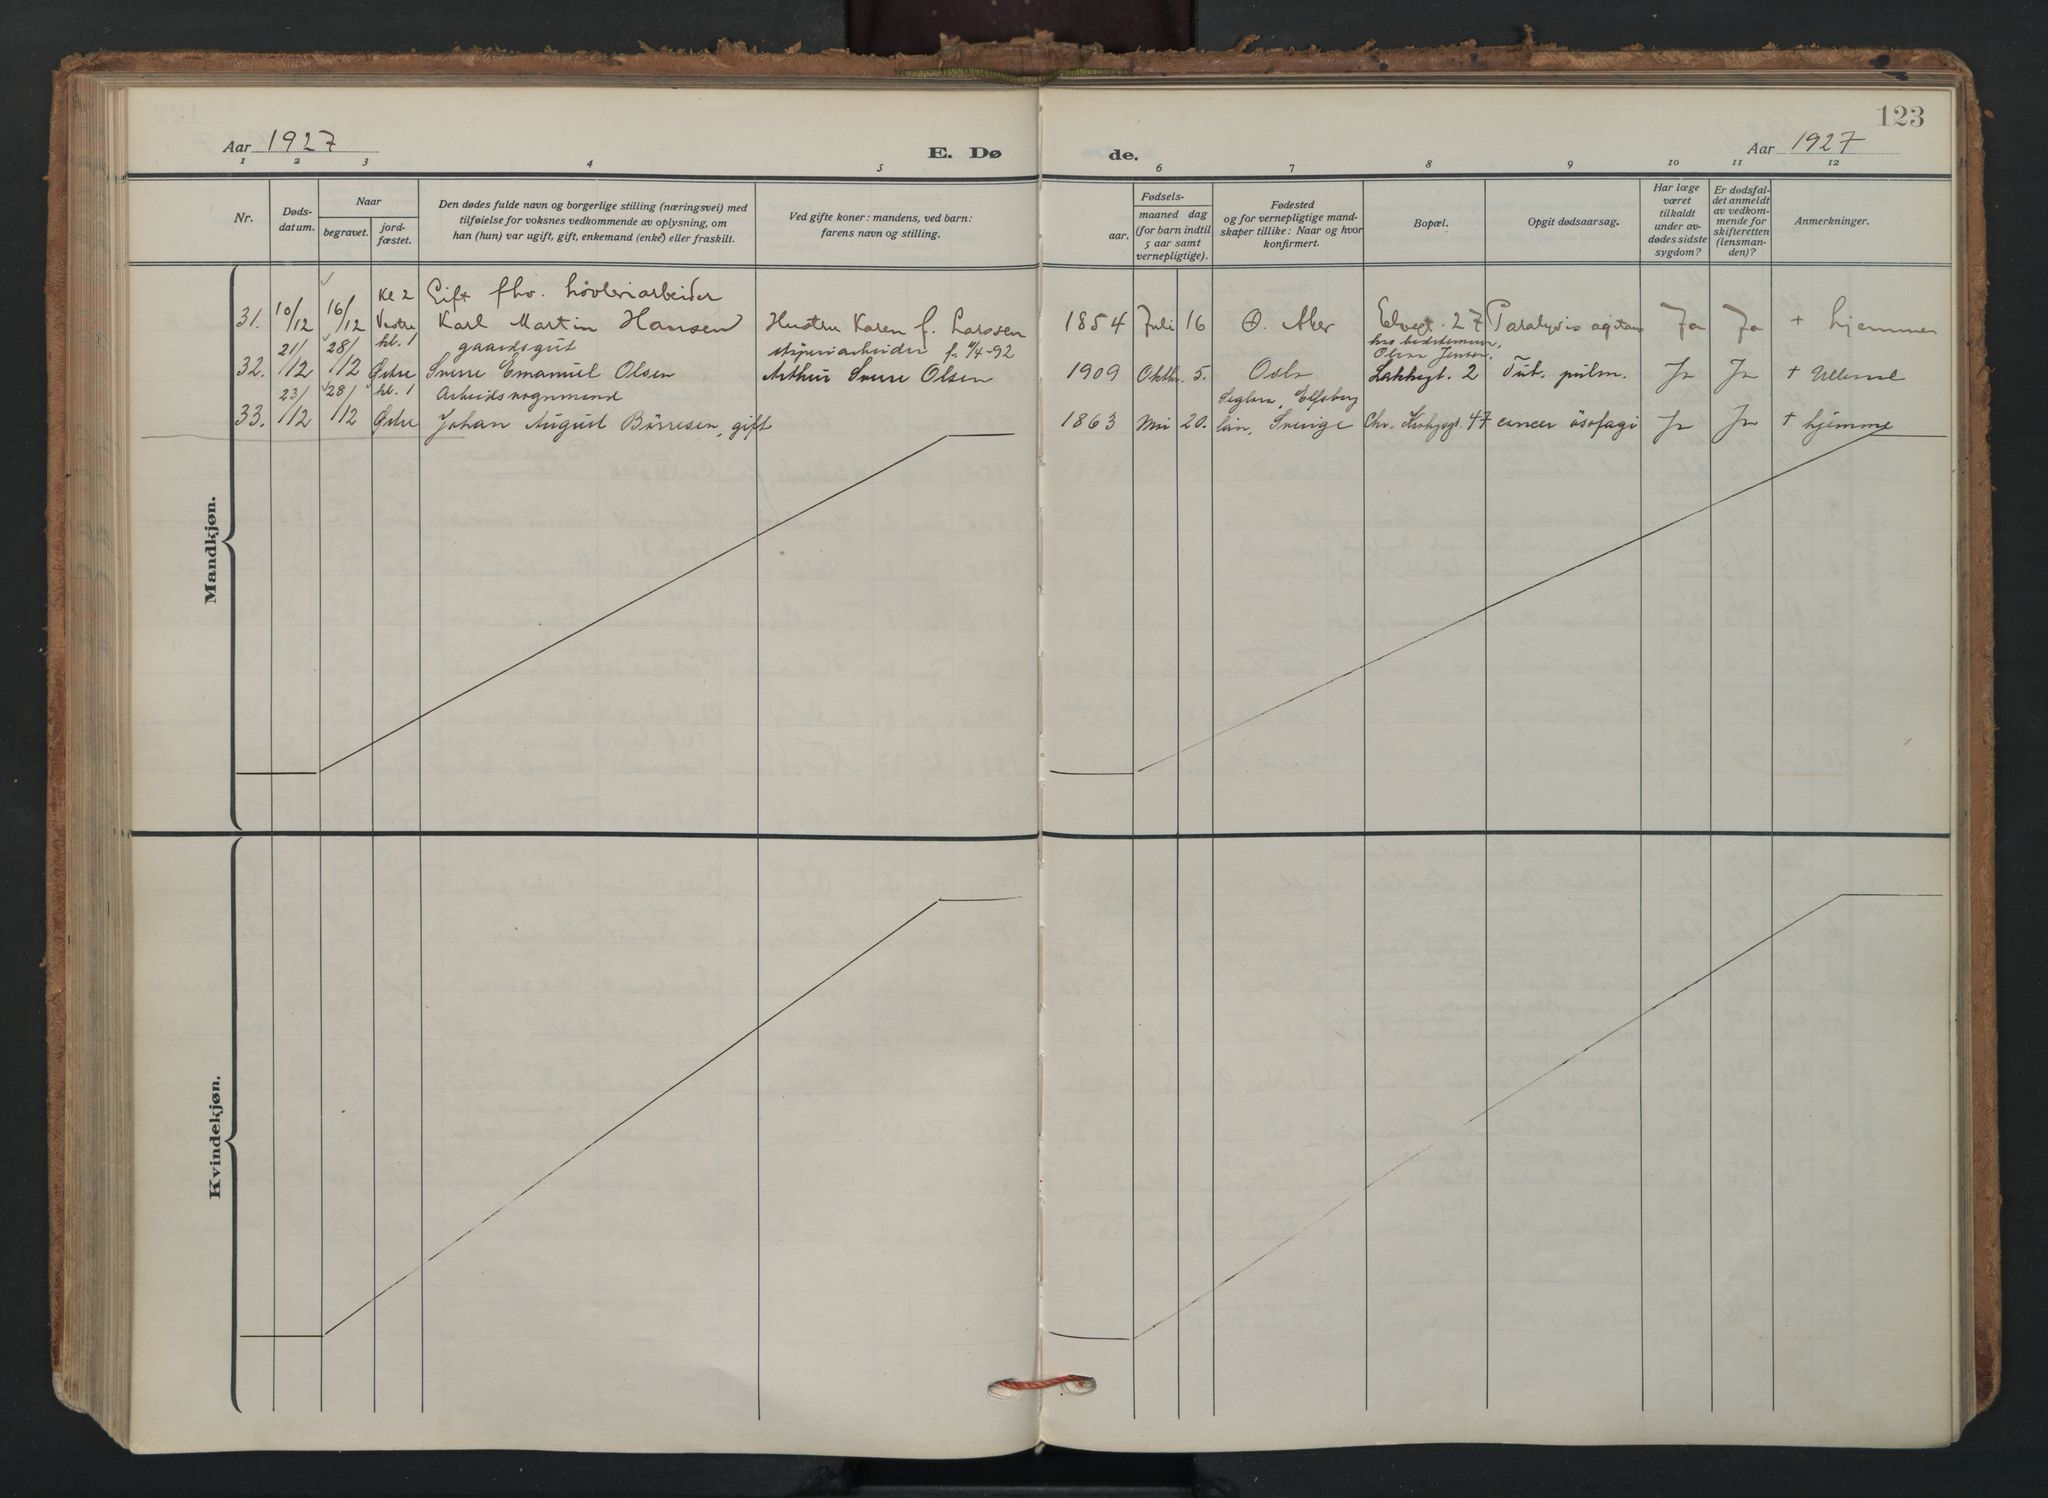 123
Aar 1927
E. Dø
de.
Aar 1927
1 2 3 4 5 6 7 8 9 10 11 12
Nr.
Døds-
datum.
Naar
begravet.
jord-
fæstet.
Den dødes fulde navn og borgerlige stilling (næringsvei) med
tilføielse for voksnes vedkommende av oplysning, om
han (hun) var ugift, gift, enkemand (enke) eller fraskilt.
Ved gifte koner: mandens, ved barn:
farens navn og stilling.
Fødsels-
aar.
maaned dag
(for barn indtil
5 aar samt
vernepligtige).
Fødested
og for vernepligtige mand-
skaper tillike: Naar og hvor
konfirmert.
Bopæl.
Opgit dødsaarsag.
Har læge
været
tilkaldt
under av-
dødes sidste
sygdom?
Er dødsfal-
det anmeldt
av vedkom-
mende for
skifteretten
(lensman-
den)?
Anmerkninger.
Mandkjøn.
Kl 2 Gift fhv. høvleriarbeider
31. 10/12 16/12 Vestre Karl Martin Hansen Hustru Karen f. Larssen 1854 Juli 16 Ø. Aker Elvegt. 27 Paralysis agitans Ja Ja + hjemme
kl. 1 gaardsgut f. 4/4-92 hos bedstemoren, Oline Jensen,
32. 21/12 28/12 Østre Sverre Emanuel Olsen Arthur Sverre Olsen 1909 Oktbr. 5. Oslo Lakkegt. 2 Tub. pulm. Ja Ja + Ullevaal
kl. 1 Arbeidsvognmand Seglora, Elfsborg
33. 23/12 28/12 Østre Johan August Børresen, gift 1863 Mai 20. län, Sverige Chr. Krohgsgt. 47 cancer øsofagi Ja Ja + hjemme
Kvindekjøn.